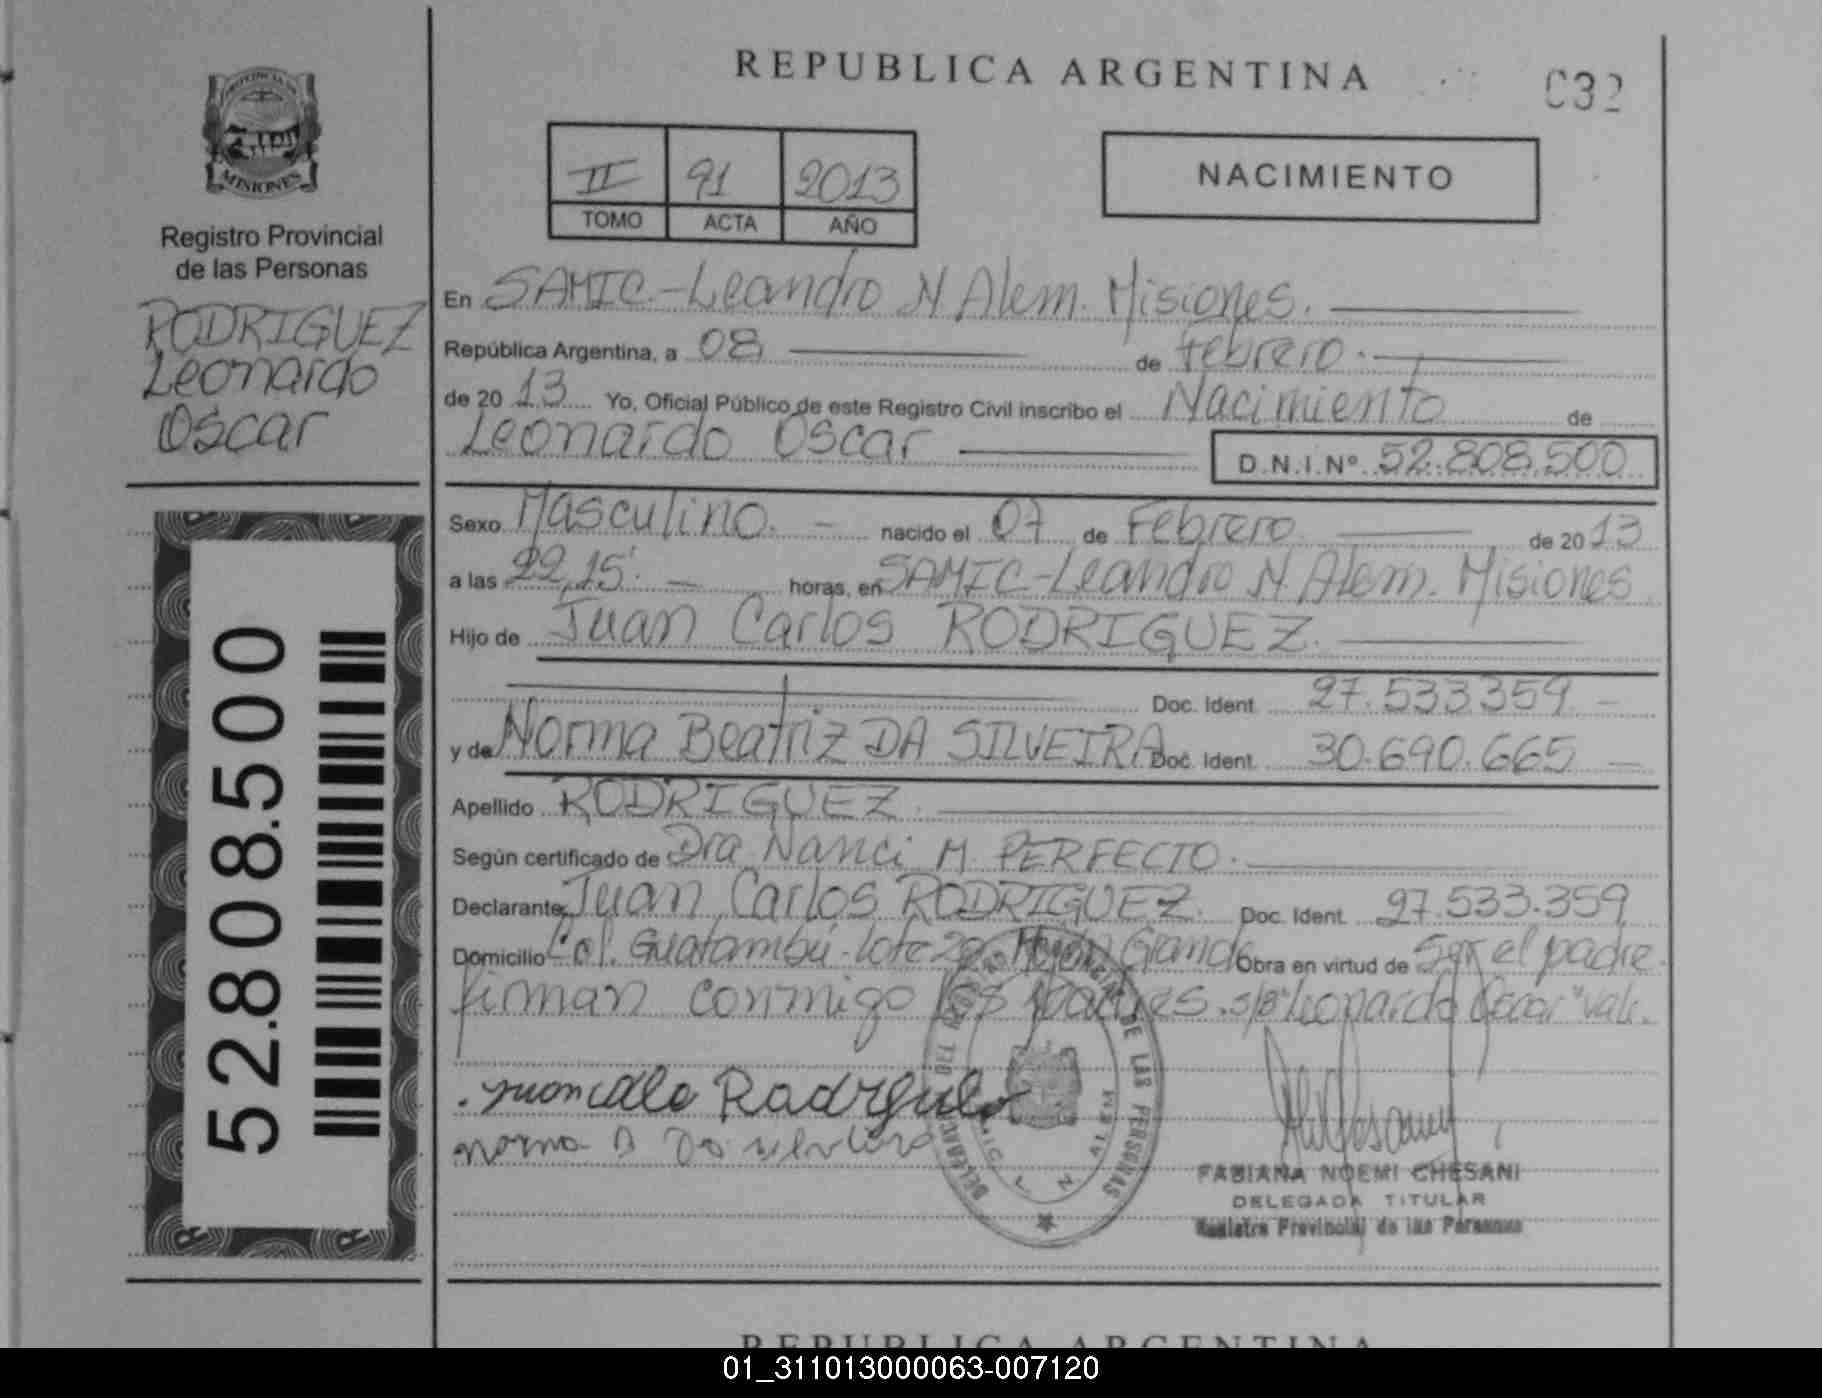 REPUBLICA ARGENTINA
C32
PROVINCIA DE
MISIONES
Registro Provincial
de las Personas
RODRIGUEZ
Leonardo
Oscar
52.808.500
II 91 2013
TOMO ACTA AÑO
NACIMIENTO
En SAMIC.-Leandro N Alem. Misiones.
República Argentina, a 08 de febrero.
de 2013 Yo, Oficial Público de este Registro Civil inscribo el Nacimiento de
Leonardo Oscar D.N.I.Nº 52.808.500
Sexo Masculino. nacido el 07 de Febrero de 2013
a las 22,15'. horas, en SAMIC-Leandro N. Alem. Misiones
Hijo de Juan Carlos RODRIGUEZ.
Doc. Ident. 27.533359
y de Norma Beatriz DA SILVEIRA Doc. Ident. 30.690.665
Apellido RODRIGUEZ.
Según certificado de Dra Nanci M. PERFECTO.
Declarante Juan Carlos RODRIGUEZ. Doc. Ident. 27.533.359
Domicilio Col. Guatambú-lote Grande Obra en virtud de Ser el padre.
firman conmigo los padres. s/B "Leonardo Oscar" Vale.
Norma B Da
DELEGACION DEL REGISTRO PROVINCIAL DE LAS PERSONAS
L N ALEM
FABIANA NOEMI CHESANI
DELEGADA TITULAR
Registro Provincial de las Personas
REPUBLICA ARGENTINA
01_311013000063-007120